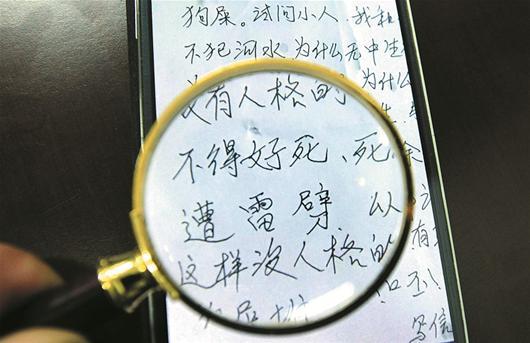 狗屎。试问小人,我和
不犯河水为什么无中生
没有人格的 为什么
不得好死、死
遭雷劈, 以
这样没人格的 有
呸!
写信